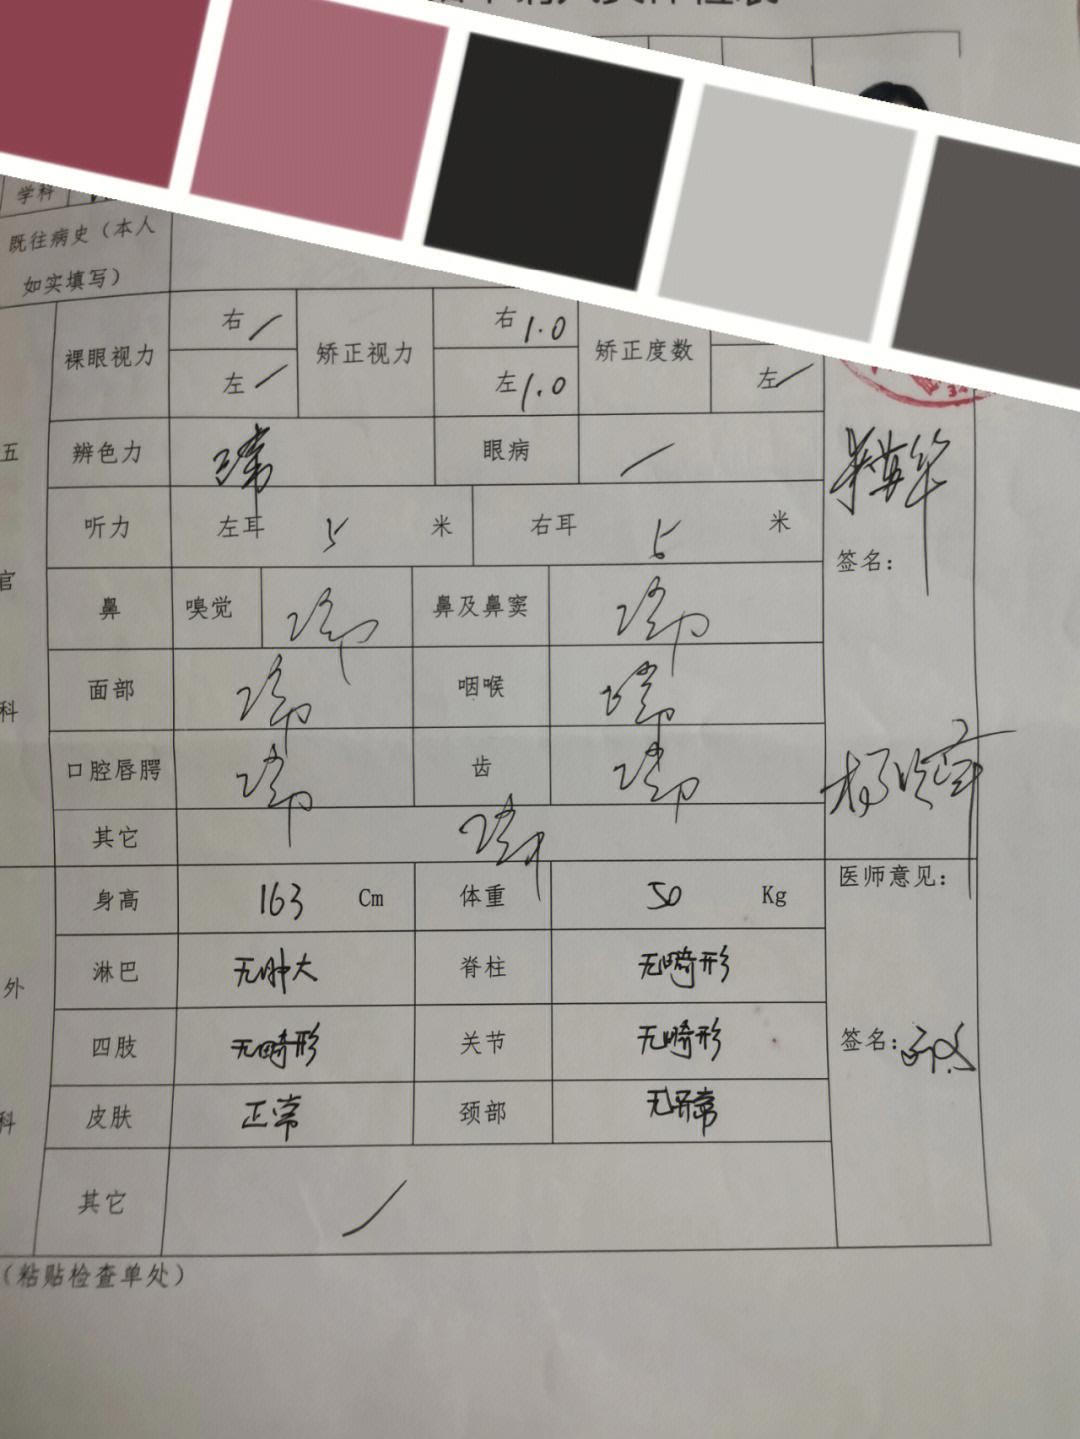 学科
既往病史（本人
如实填写）
五官科
裸眼视力 右 / 矫正视力 右 1.0 矫正度数
左 / 左 1.0 左 /
辨色力 正常 眼病 /
听力 左耳 5 米 右耳 5 米
签名：
鼻 嗅觉 正常 鼻及鼻窦 正常
面部 正常 咽喉 正常
口腔唇腭 正常 齿 正常
其它 正常
外科
身高 163 Cm 体重 50 Kg
医师意见：
淋巴 无肿大 脊柱 无畸形
四肢 无畸形 关节 无畸形
签名：
皮肤 正常 颈部 无异常
其它 /
（粘贴检查单处）